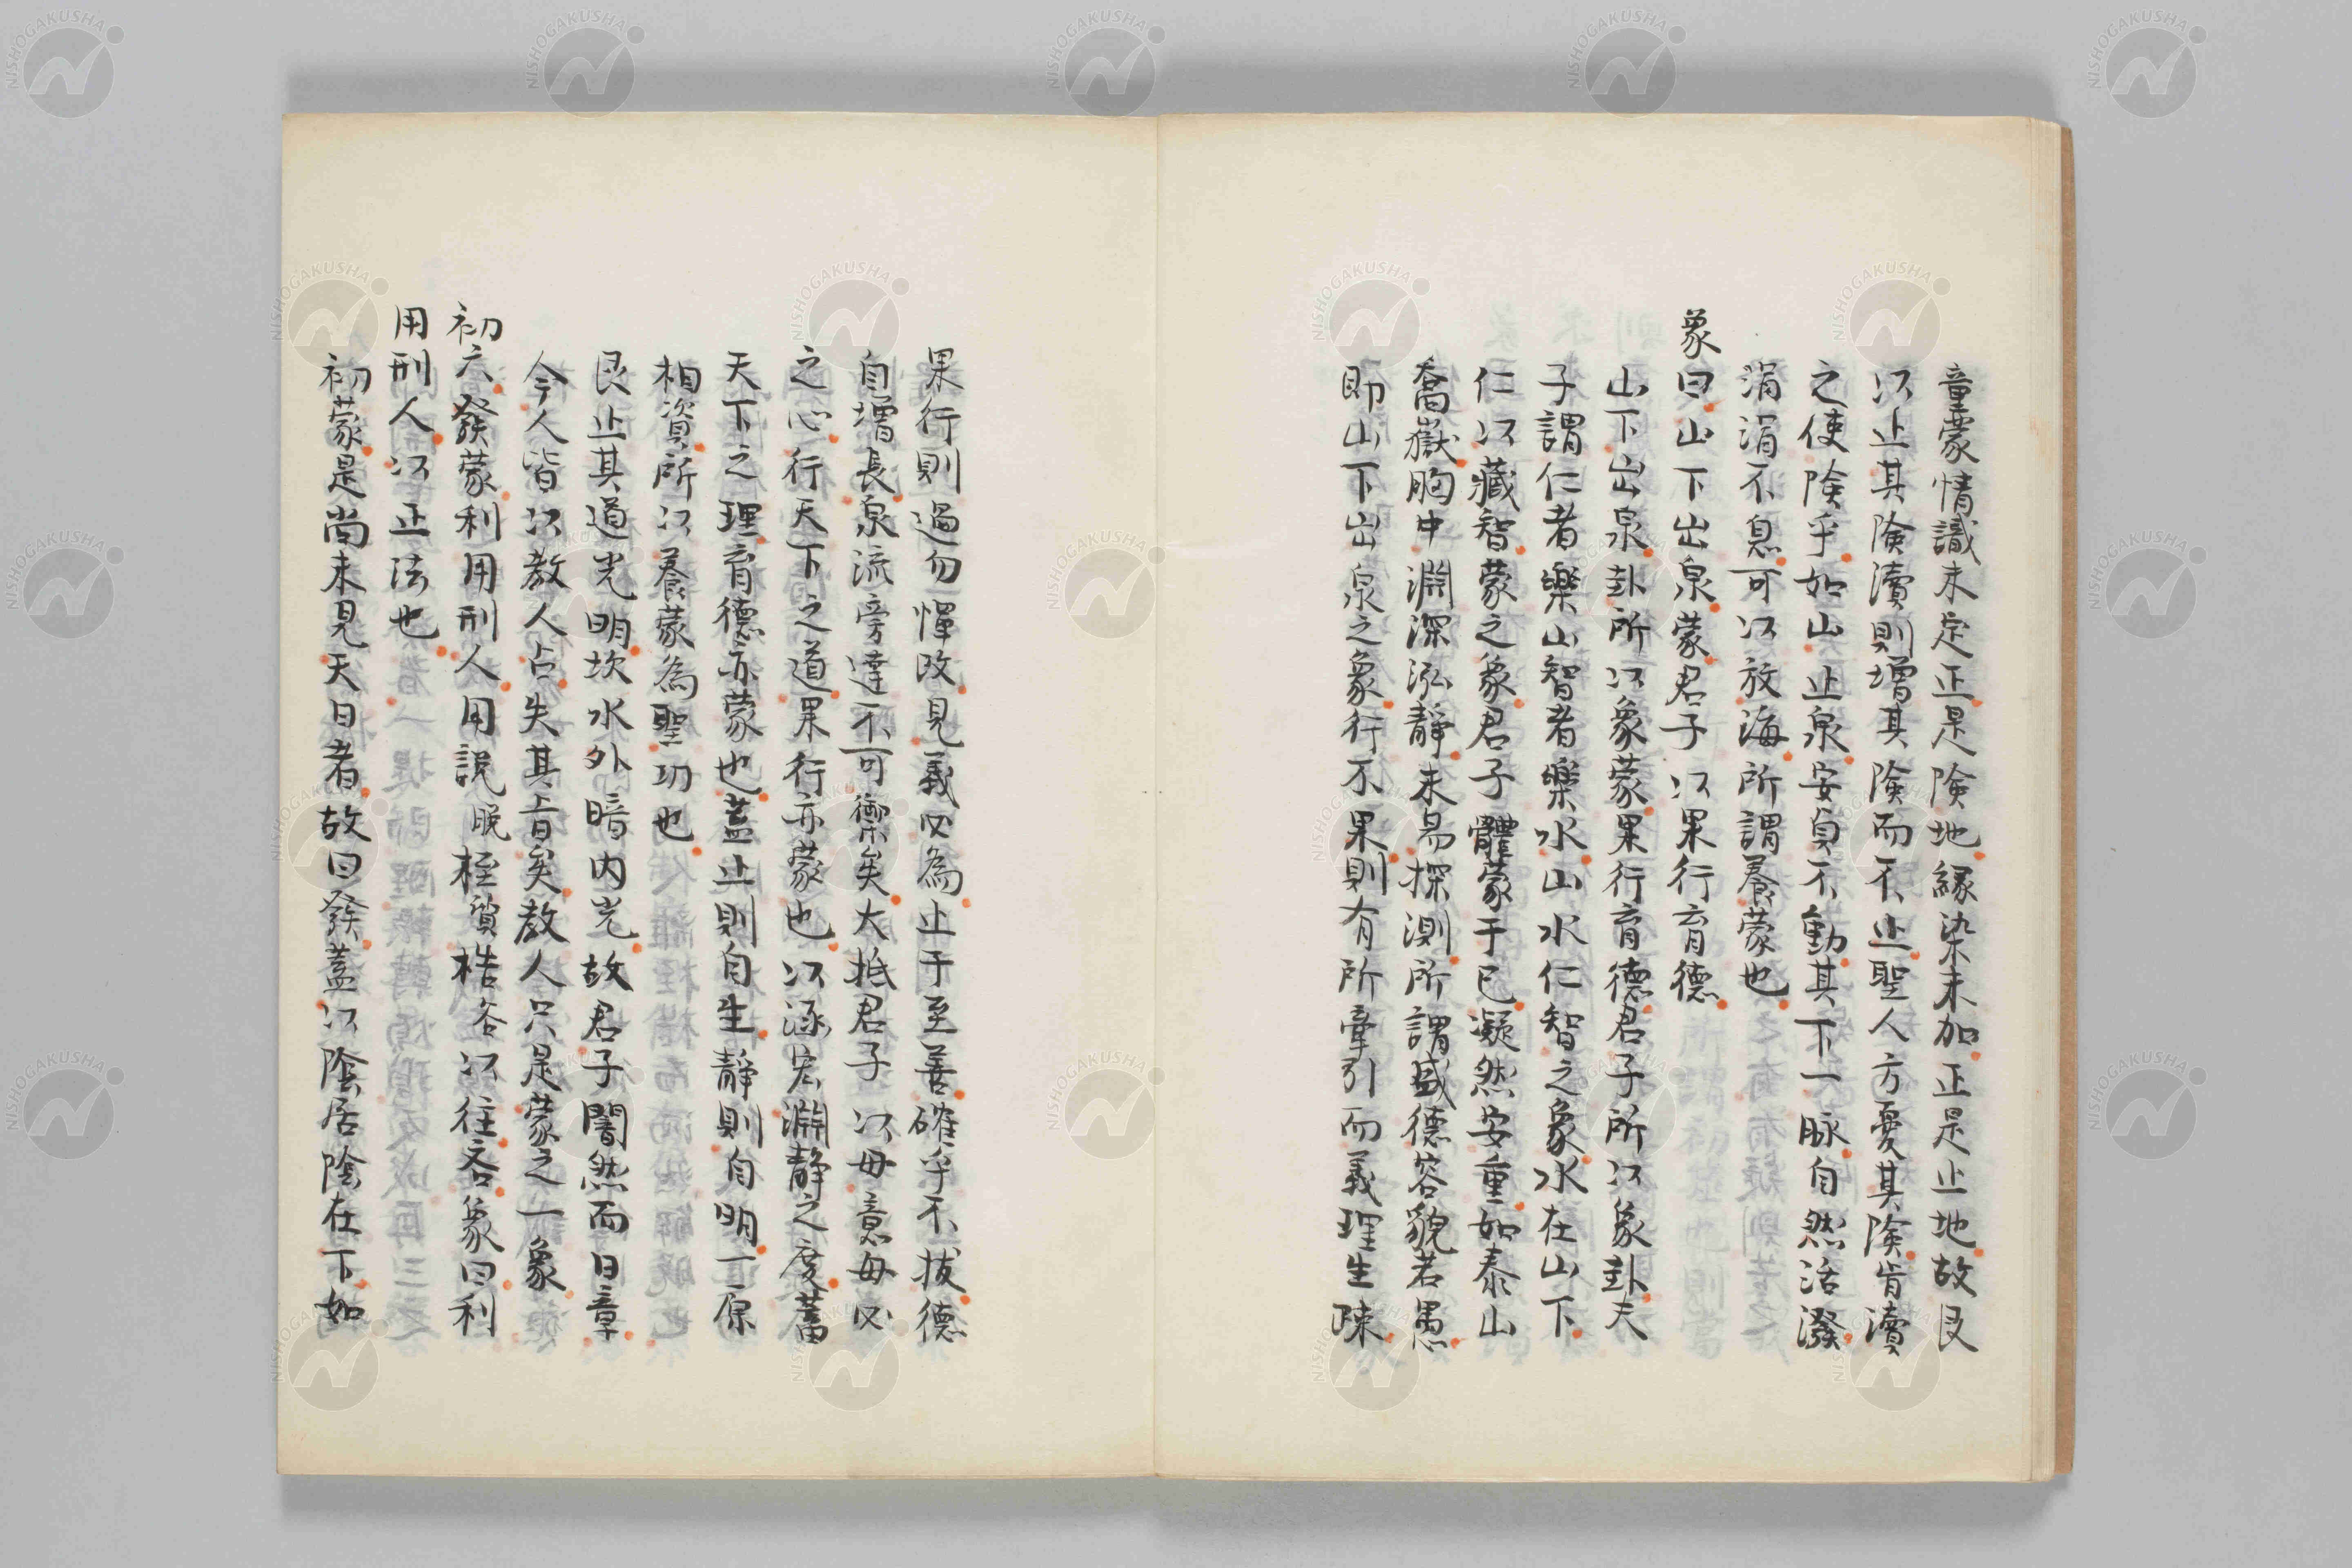 童蒙情識未定正是険地縁染未加正是止地故艮
以止其険瀆則増其険而不止聖人方憂其険肯瀆
之使険乎如山止泉安貞不動其下一脉自然活潑
涓涓不息可以放海所謂養蒙也
象曰山下出泉蒙君子以果行育德
山下出泉卦所以象蒙果行育德君子所以象卦夫
子謂仁者樂山智者樂水山水仁智之象水在山下
仁以藏智蒙之象君子體蒙于已凝然安重如泰山
喬嶽胸中淵深泓靜未易探測所謂盛德容貌若愚
即山下出泉之象行不果則有所牽引而義理生疎
果行則過勿憚改見義必為止于至善確乎不拔德
自増長泉流旁達不可禦矣大抵君子以毋意毋必
之心行天下之道果行亦蒙也以涵宏淵靜之度蓄
天下之理育德亦蒙也蓋止則自生靜則自明一原
相資所以養蒙為聖功也
艮止其道光明坎水外暗内光故君子闇然而日章
今人皆以教人占失其旨矣教人只是蒙之一象
初六發蒙利用刑人用說脫桎質梏谷以往吝象曰利
用刑人以正法也
初蒙是尚未見天日者故曰發蓋以陰居陰在下如
NISHOGAKUSHA